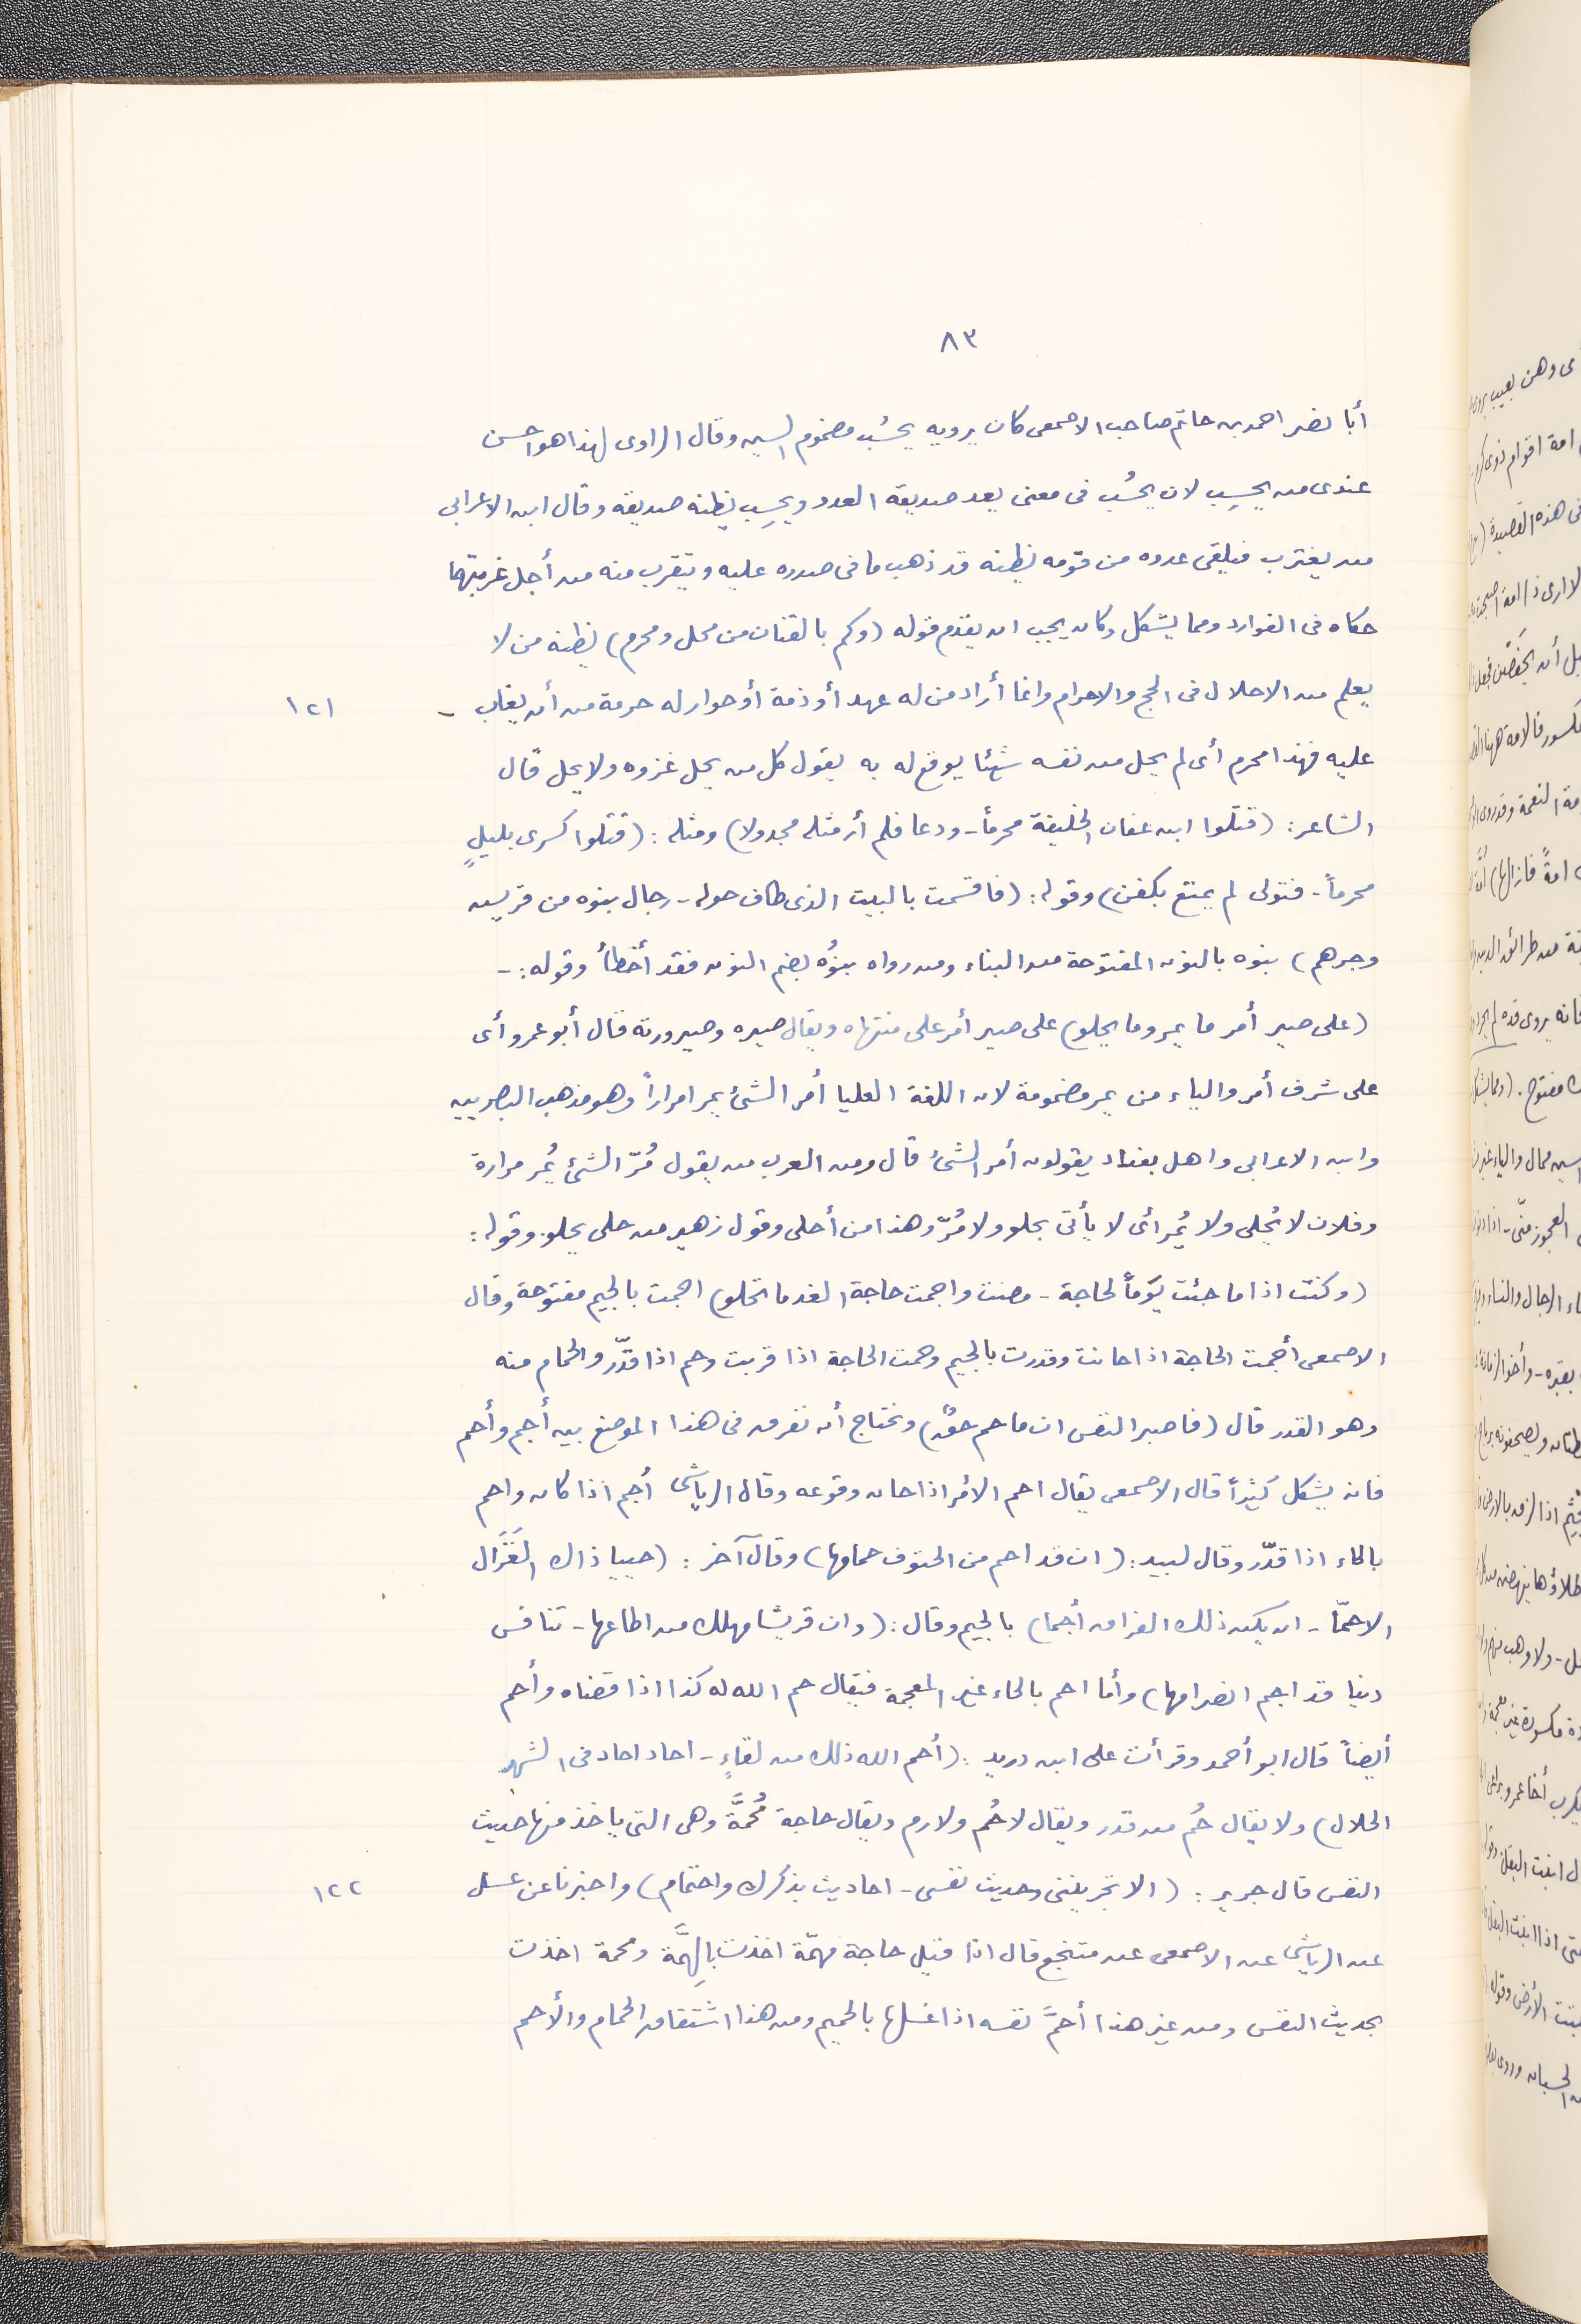 ٨٣
أبا نصر احمد بن حاتم صاحب الاصمعى كان يرويه يحسُب مضموم السين وقال الراوى لهذا هو احسن
عندى من يحسِب لان يحسُب فى معنى يعد صديقه العدد ويحسِب يظنه صديقه وقال ابن الاعرابى
من يغترب فيلقى عدوه من قومه يظنه قد ذهب ما فى صدره عليه ويتقرب منه من أجل غربتهما
حكاه فى الفوارد ومما يشكل وكان يجب ان يقدم قوله (وكم بالقنان من محل ومحرم) يظنه من لا
يعلم من الاحلال فى الحج والاحرام وانما أراد من له عهد أو ذمة أو جوار له حرمة من أن يغاب - ١٢١
عليه فهذا محرم أى لم يحل من نفسه شيئا يوقع له به يقول كل من يحل غزوه ولا يحل قال
الشاعر: (قتلوا ابن عفان الخليفة محرماً - ودعا فلم أر مثله مجدولا) ومثله: (قتلوا كسرى بليلٍ
محرماً - فتولى لم يمتع بكفن) وقوله: (فاقسمت بالبيت الذى طاف حوله - رجال بنوه من قريش
وجرهم) بنوه بالنون المفتوحة من البناء ومن رواه بنوُه بضم النون فقد أخطأ وقوله: -
(على صير أمر ما يمر وما يحلو) على صير أمر على منتهاه ويقال صيره وصيرورته قال أبو عمرو أى
على شرف أمر والياء من يمر مضمومة لان اللغة العليا أمر الشئ يمر امراراً وهو مذهب البصريين
وابن الاعرابى واهل بغداد يقولون أمر الشئ قال ومن العرب من يقول مُرّ الشئ يُمر مرارة
وفلان لا يُحلى ولا يُمر أى لا يأتى بحلو ولا مُرّ وهذا من أحلى وقول زهير من حلى يحلو. وقوله:
(وكنت اذا ما جئت يوماً لحاجة - مضت واجمت حاجة الغد ما تخلو) اجمت بالجيم مفتوحة وقال
الاصمعى أجمت الحاجة اذا حانت وقدرت بالجيم وحمت الحاجة اذا قربت وحم اذا قدّر والحمام منه
وهو القدر قال (فاصبر النفس ان ما حم حقٌ) ونحتاج أن نفرق فى هذا الموضع بين أجم وأحم
فانه يشكل كثيراً قال الاصمعى يقال احم الامُر اذا حان وقوعه وقال الرياشى أجم اذا كان واحم
بالحاء اذا قدّر وقال لبيد: (ان قد احم من الحتوف حمامها) وقال آخر: (حييا ذاك الغَزَال
الاحمّا - ان يكن ذلك الفراق أجما) بالجيم وقال: (وان قريشا مهلك من اطاعها - تنافس
دنيا قد اجم انصرامها) وأما احم بالحاء غير المعجمة فيقال حم الله له كذا اذا قضاه وأحم
أيضاً قال ابو أحمد وقرأت على ابن دريد: (أحم الله ذلك من لقاءٍ - احاد احاد فى الشهر
الحلال) ولا يقال حُم من قدر ويقال لا حُم ولا رم ويقال حاجة مُحمَّة وهى التى ياخذ منها حديث
النفس قال جرير: (الا تجزيننى وحديث نفسى - احاديث بذكرك واحتمام) واخبرنا عن عسل ١٢٢
عن الرياشى عن الاصمعى عن منتجع قال اذا قيل حاجة مهمّة اخذت بالهِمَّة ومحمة اخذت
بحديث النفس ومن غير هذا أحمَّ نفسه اذا غسلها بالحميم ومن هذا اشتقاق الحمام والأحم